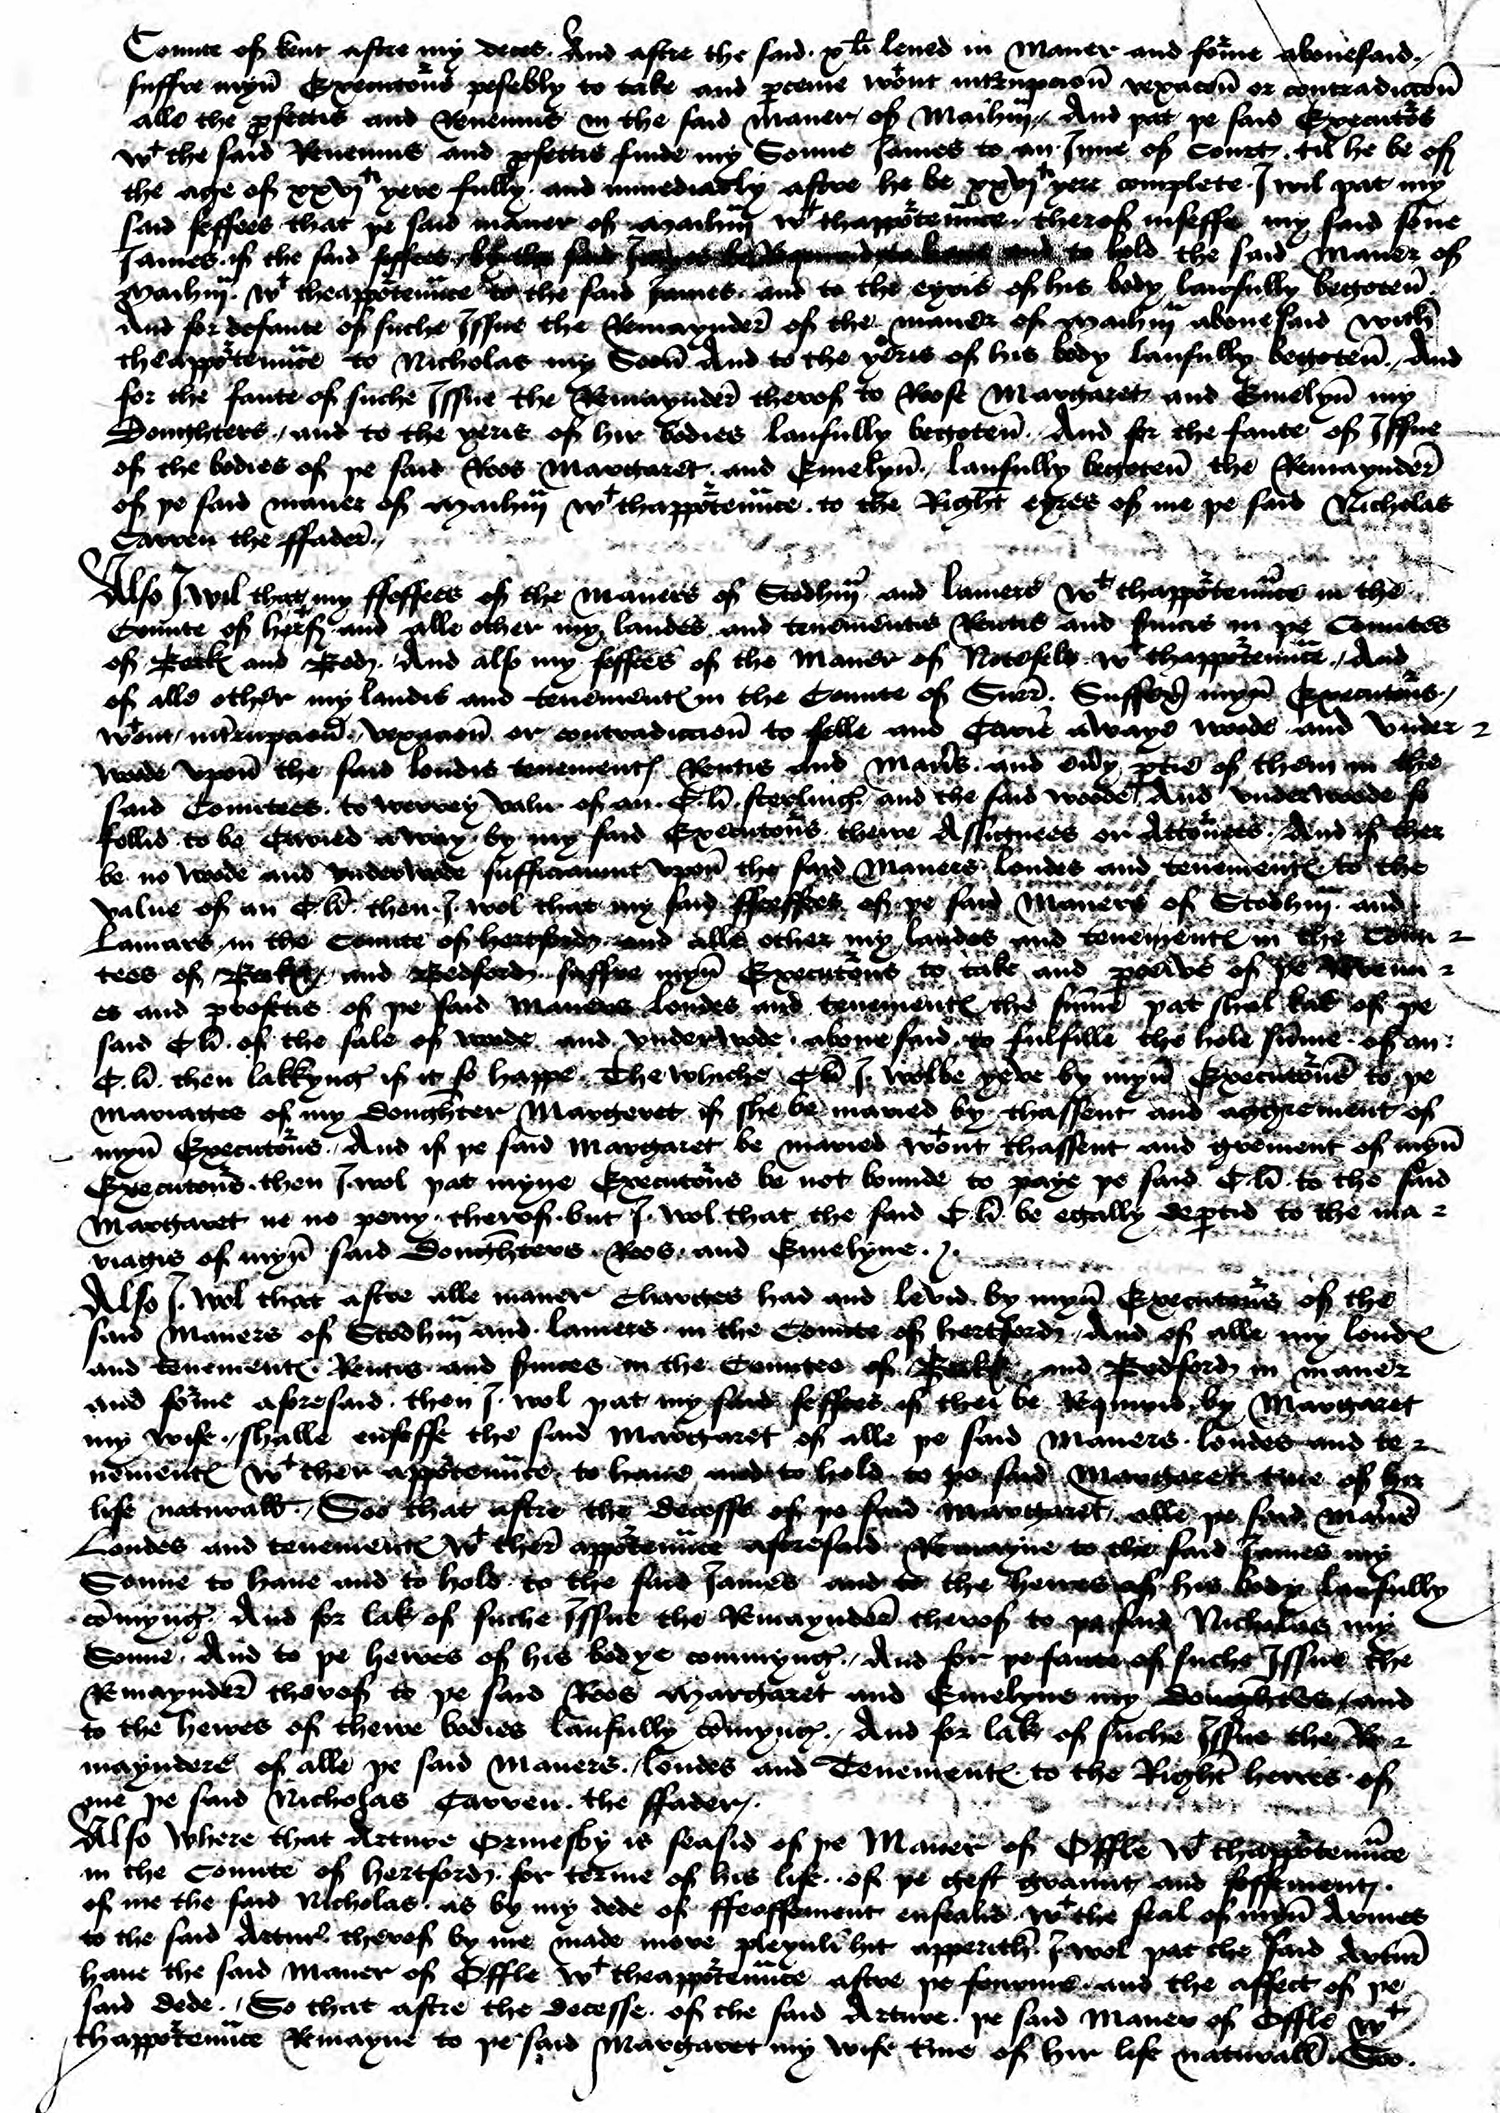 Counte of kent aftre my deces. And aftre the said. xli leued in Maner and forme abouesaid.
suffre myn Executours pesebly to take and perceiue wtout intrrupcion vexacion or contradiccion
alle the profettis and Reuenuus in the said maner of Maihm. And þat þe said Executours
wt the said Reuenuus and profettis finde my Sonne James to an Inne of Court. til he be of
the age of xxvjti yere fully. and immediatly aftre he be xxvjti yere complete. I wil þat my
said feffees that þe said maner of Maihm wt thapportenunce. therof infeffe my said sone
James. if the said feffees and to hold the said Maner of
Maihm. wt theapportenunce to the said James. and to the eyris of his body lawfully begoten.
And for defaute of suche Issue the Remaynder of the maner of Maihm abouesaid with
theapportenunce to Nicholas my Soon And to the yeris of his body laufully begoten. And
for the faute of suche Issue the Remaynder therof to Rose Margaret and Emelyn my
Doughters. and to the yeris of hir bodies laufully begoten. And for the faute of Issue
of the bodies of þe said Roos Margaret. and Emelyn. laufully begoten the Remaynder
of þe said maner of Maihm wt thapportenunce. to the Right eyres of me þe said Nicholas
Carren the ffader.
Also I wil that my ffeffees of the maners of Stodhm and lamers wt thapportenunce in the
Counte of hertf. and alle other my landes and tenementis Rentis and seruices in þe Countes
of Bock and Bed. And also my feffees of the Maner of Notefeld wt thapportenunce. And
of alle other my landis and tenement in the Counte of Surr. Suffer myn Executours.
wtout intrrupcion. vexacion or contradiccion to felle and Carie awaye wode and vnder
wode vpon the said londis tenement Rentis and Maners. and euery partie of them in the
said Countees. to verrey valu of an. C.li. sterling. and the said woode And vnderwoode so
fellid to be Caried away by my said Executours. theire Assignees or Attournes. And if ther
be no woode and vnderwode sufficiaunt vpon the said Maners londes and tenement to the
value of an C.li. then. I. wol that my said ffeoffees of þe said Maners of Stodhm. and
Lamars in the Counte of hertford. and alle other my landes and tenement in the Coun
tees of and Bedford. suffre myn Executours to take and perceiue of þe Reuenu
es and profettis of þe said Maners londes and tenement the summe þat shal lak of þe
said C li. of the sale of woode and vnderwode. abouesaid to fulfille the hole summe. of an
C. li. then lakkyng if it so happe. The whiche C li I. wol be yeue by myn Executours to þe
mariages of my doughter Margeret if she be maried by thassent and aggrement of
myn Executours. And if þe said Margaret be maried wtout thassent and grement of myn
Executours. then I. wol þat myne Executours be not bounde to paye þe said C li. to the said
Margaret ne no peny. therof. but I. wol that the said C li be egally departid to the ma
riagis of myn said Doughters. Roos. and Emelyne.
Also I. wol that aftre alle maner Charges had and levid by myn Executours of the
said Maners of Stodhm and. lamers. in the Counte of hertford. And of alle my lond
and tenement. Rentis and seruices in the Countes of and Bedford in maner
and forme aforesaid. then I. wol þat my said feffees if thei be Requyrid by Margaret
my wife. shalle enfeffe the said Margaret of alle þe said Maners. londes and te
nement wt ther appertenunce. to haue and to hold to þe said Margaret time of hir
life naturall. Soo that aftre the decesse of þe said Margaret. alle þe said Maners
Londes and tenement wt ther appertenunce aforesaid Remayne to the said James my
Sonne to haue and to hold. to the said James and to the heires of his body laufully
comyng. And for lak of suche Issue the Remaynder therof to þe said Nicholas my
Sonne. And to þe heires of his bodye commyng. And for þe faute of suche Issue the
Remaynder therof to þe said Roos Margaret and Emelyne my doughters and
to the heires of theire bodies laufully comyng. And for lak of suche Issue the Re
maynders of alle þe said Maners. londes and Tenement to the Right heires of
me þe said Nicholas Carren. the ffader.
Also where that Arture Ormesby is seasid of þe Maner of Offle wt thapportenunce
in the Counte of hertford. for terme of his life. of þe gest graunt and feffement.
of me the said Nicholas. as by my dede of ffeoffement ensealid. wt the seal of myn Armes
to the said Artur. therof by me made more pleynli hit apperith. I. wol þat the said Artur
haue the said Maner of Offle wt theapportenunce aftre þe fourme. and the affect of þe
said dede. So that aftre the decesse. of the said Arture. þe said Maner of Offle wt
thapportenunce Remayne to þe said Margaret my wife time of hir life naturall. Soo.